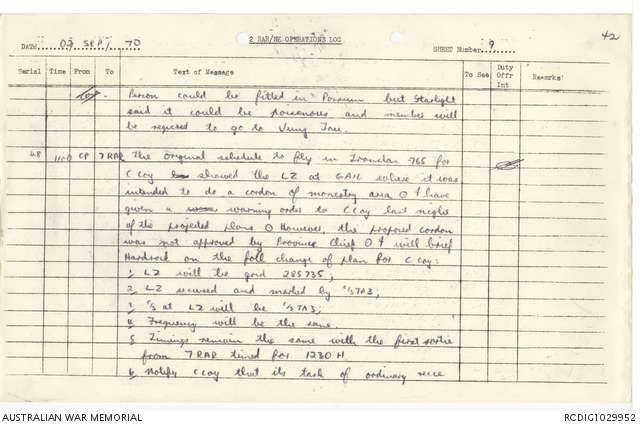 42
2 RAR/NZ OPERATIONS LOG
DATE 03 SEP / 70
SHEET Number 9
Serial Time From To Text of Message To See Duty Offr Int Remarks
Person could be fitted in Possum but Starlight
said it could be poisonous and member will
be required to go to Vung Tau.
48 1100 CP 7 RAR The original schedule to fly in Ironclad 765 for
C Coy showed the LZ at GAIL where it was
intended to do a cordon of monestry area O I have
given a warning order to C Coy last night
of the projected plans O However, the proposed cordon
was not approved by Province Chief O I will brief
Hardrock on the foll change of plan for C Coy:
1. LZ will be grid 285735,
2. LZ secured and marked by C/S TA3,
3. C/S at LZ will be C/S TA3,
4. Frequency will be the same.
5. Timings remain the same with the first sortie
from 7 RAR timed for 1230 H
6. Notify C Coy that its task of ordinary recce
AUSTRALIAN WAR MEMORIAL
RCDIG1029952